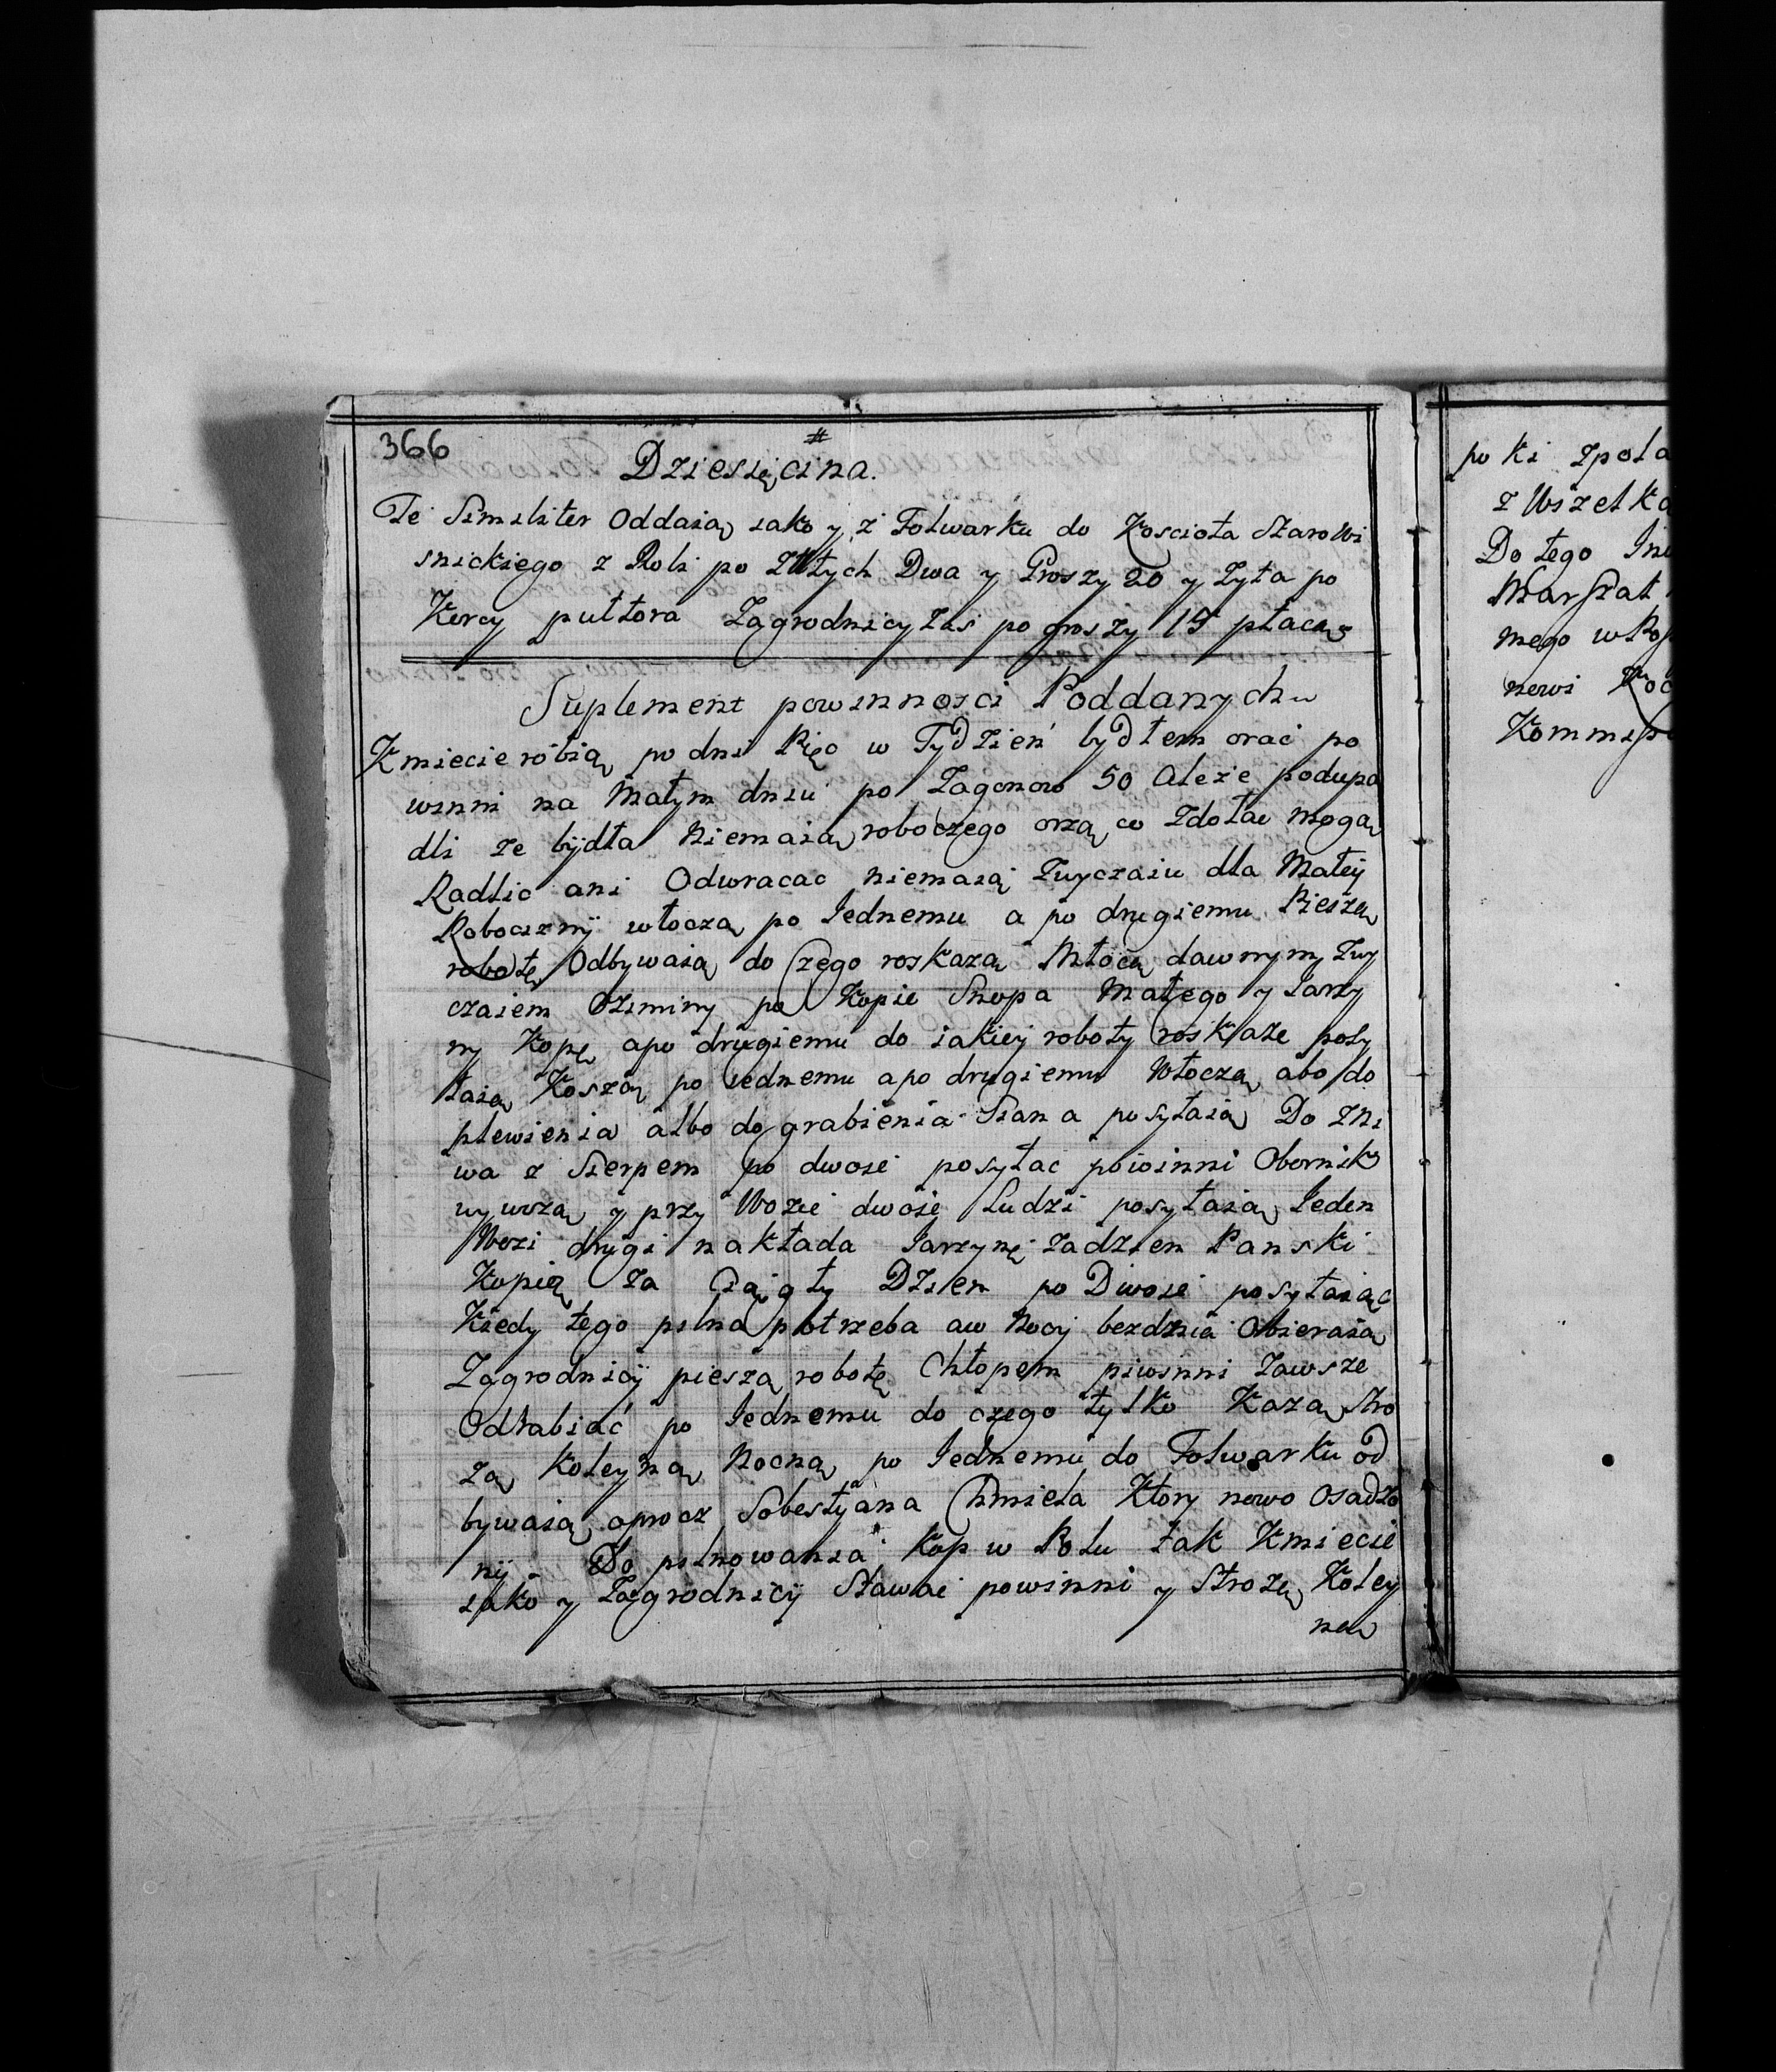 366
#
Dziesięcina.
Te Similiter Oddaią iako y z Folwarku do Kosciola Starowi
snickiego z Roli po Złłtych Dwa y Groszy 20 y Zyta po
Korcy pułtora Zagrodnicy zas po groszy 15 płacą
Suplement powinnosci Poddanych
Kmiecie robią po dni Pięc w Tydzień bydłem orać po
winni na Małym dniu po Zagonow 50 Ale że podupa
dli ze bydła Niemaią roboczego orzą co Zdołac mogą
Radlic ani Odwracac niemaią Zwyczaiu dla Małey
Roboczny włoczą po Iednemu a po drugiemu Pieszą
robotę Odbywaią do czego roskazą Młocą dawnym Zwy
czaiem Oziminy po Kopie Snopa Małego y Iarzy
ny Kopę apo drugiemu do iakiey roboty roskaże posy
łaią Koszą po iednemu apo drugiemu Włoczą abo do
plewienia albo do grabienia Siana posyłaią Do Zni
wa z Sierpem po dwoie posyłac powinni Obornik
wywożą y przy Wozie dwoie Ludzi posyłaią Ieden
Wozi drugi nakłada Iarzynę zadzien Panski
Kopią za Ciągły Dzien po Dwoie posyłaiąc
Kiedy tego pilna potrzeba aw Nocy bezdnia Obieraią
Zagrodnicy pieszą robotę Chłopem piwinni Zawsze
Odrabiać po Iednemu do czego tylko Kazą Stro
zą Koleyną Nocną po Iednemu do Folwarku od
bywaią oprocz Sobestyana Chmiela Ktory nowo Osadzo
ny - Do pilnowania Kop w Polu tak Kmiecie
iako y Zagrodnicy Stawać powinni y Strożę Koley
ną
po ki zpola
z Wszelką
Do tego
Marszał
nego
nowi